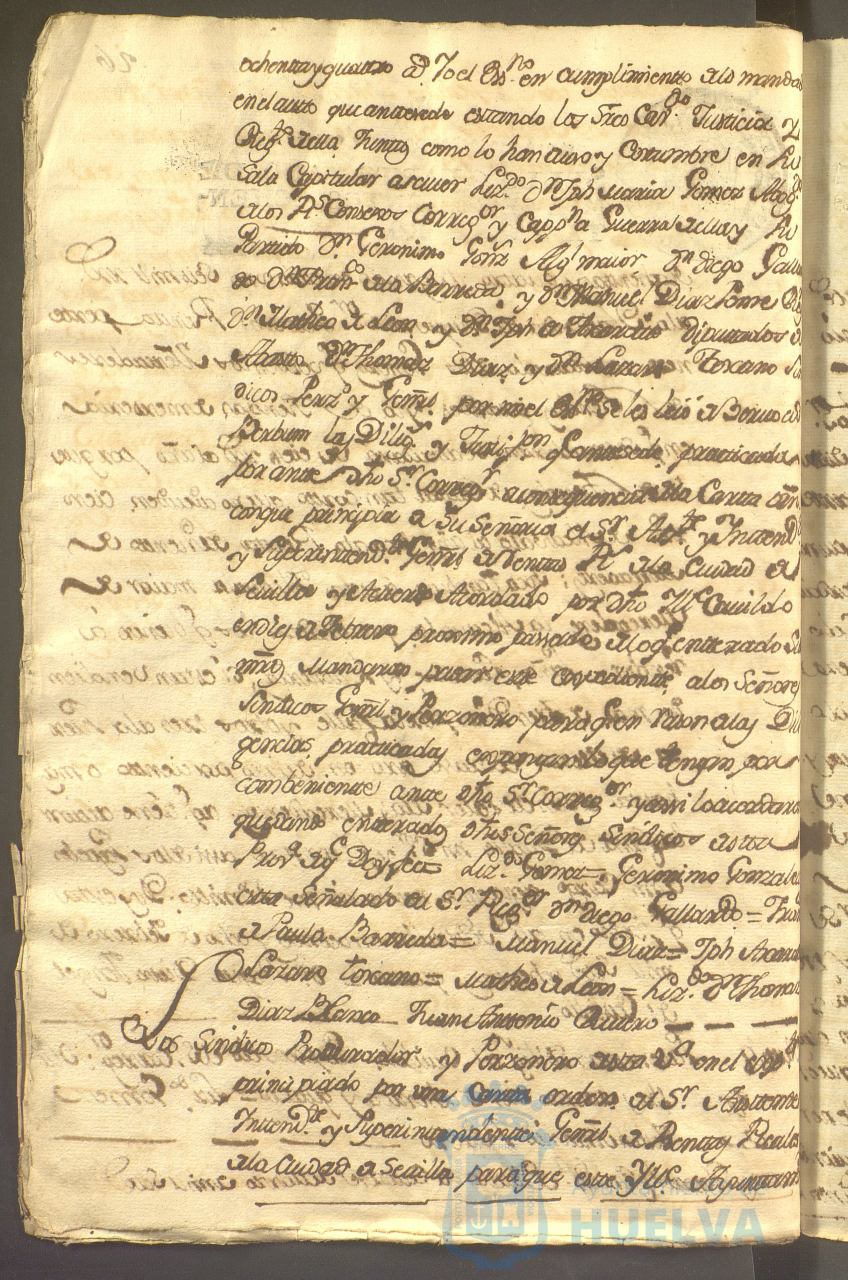 ochenta y quatro a.^s Yo el Ess.^no en cumplimiento a lo mandado
en el auto que antecede estando los S.^res Con.^o Justicia y
Reg.^to de ella Juntos como lo han de uso y Costumbre en su
Sala Capitular a saver Liz.^do D.^n Jph Maria Gomez Abog.^do
de los R.^s Consexos Correg.^or y Capp.^n a Guerra de ella y su
Partido D.^n Geronimo Gonz.^z Alg.^l maior D.^n Diego Gallar
do D.^n Fran.^co de la Barreda, y D.^n Manuel Diaz
D.^n Matheo de Leon y D.^n Jph de diputados de
Abasto D.^n Thomas Diaz, y D.^n Lazaro Toscano Sin
dicos Perz.^o y Gen̅l. por mi el Ess.^no se les leió de Bervo ad
Berbum la Dilig.^a y practicada
por ante dho S.^r Correg.^r a consequencia de la Carta orn̅
con que principia de Su Señoria el S.^r Asis.^te y Intend.^te
y Superintend.^te Gen̅l de Rentas R.^s de la Ciudad de
Sevilla y Acuerdo Acordado por dho Ill.^e Cavildo
en diez de Febrero proximo pasado de lo q.^e enterado Sus
mrds Mandaron pasar este expediente a los Señores
Sindicos Gen̅l y Perzonero para q.^e en razon de las Dili
gencias practicadas expongan lo que tengan por
combeniente ante dho S.^r Correg.^or y assi lo acordaron
quedando enterados dhos Señores Sindicos de esta
Prov.^a de q.^e Doy fee Liz.^do Gomez = Geronimo Gonzalez
esta Señalado del S.^r Reg.^or D.^n Diego Gallardo = Fran.^co
de Paula Barreda = Manuel Diaz = Jph
Lazaro Toscano = Matheo de Leon = Liz.^do D.^n Thomas
Diaz Blanco Juan Antonio Quintero
Los Sindico Procurador y Perzonero de esta V.^a en el exp.^te
principiado por una Carta orden del S.^r Asistente
Intend.^te y Superintendente Gen̅l de Rentas Reales
de la Ciudad de Sevilla para que este Yll.^e Ayuntam.
HUELVA